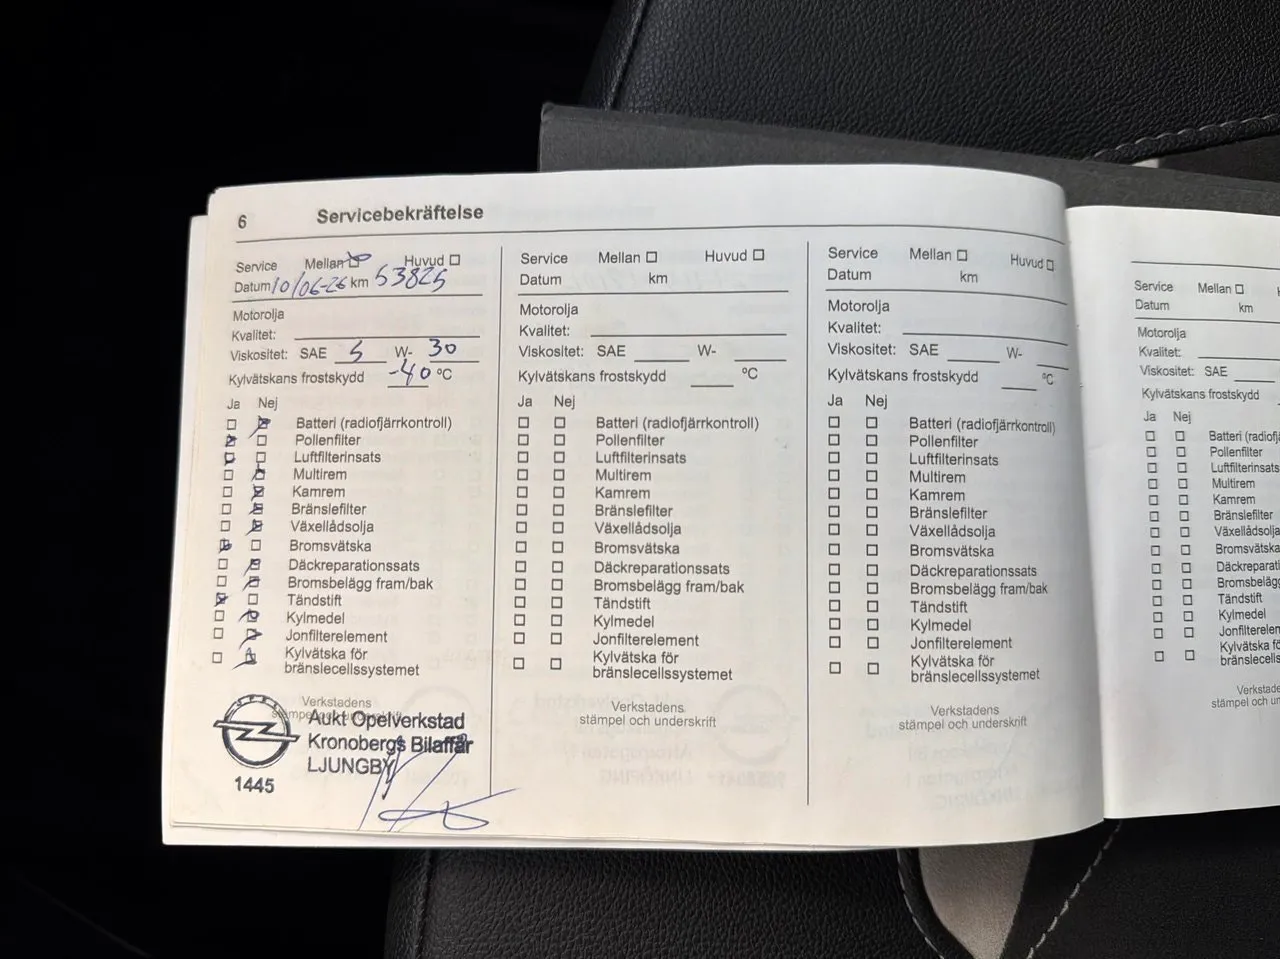 6 Servicebekräftelse
Service Mellan ☒ Huvud ☐
Datum 10/06-26 km 53825
Motorolja
Kvalitet:
Viskositet: SAE 5 W- 30
Kylvätskans frostskydd -40 °C
Ja Nej
☐ ☒ Batteri (radiofjärrkontroll)
☒ ☐ Pollenfilter
☒ ☐ Luftfilterinsats
☐ ☒ Multirem
☐ ☒ Kamrem
☐ ☒ Bränslefilter
☐ ☒ Växellådsolja
☒ ☐ Bromsvätska
☐ ☒ Däckreparationssats
☐ ☒ Bromsbelägg fram/bak
☒ ☐ Tändstift
☐ ☒ Kylmedel
☐ ☒ Jonfilterelement
☐ ☒ Kylvätska för
bränslecellssystemet
Verkstadens
stämpel och underskrift
OPEL
Aukt Opelverkstad
Kronobergs Bilaffär
LJUNGBY
1445
Service Mellan ☐ Huvud ☐
Datum km
Motorolja
Kvalitet:
Viskositet: SAE W-
Kylvätskans frostskydd °C
Ja Nej
☐ ☐ Batteri (radiofjärrkontroll)
☐ ☐ Pollenfilter
☐ ☐ Luftfilterinsats
☐ ☐ Multirem
☐ ☐ Kamrem
☐ ☐ Bränslefilter
☐ ☐ Växellådsolja
☐ ☐ Bromsvätska
☐ ☐ Däckreparationssats
☐ ☐ Bromsbelägg fram/bak
☐ ☐ Tändstift
☐ ☐ Kylmedel
☐ ☐ Jonfilterelement
☐ ☐ Kylvätska för
bränslecellssystemet
Verkstadens
stämpel och underskrift
Service Mellan ☐ Huvud ☐
Datum km
Motorolja
Kvalitet:
Viskositet: SAE W-
Kylvätskans frostskydd °C
Ja Nej
☐ ☐ Batteri (radiofjärrkontroll)
☐ ☐ Pollenfilter
☐ ☐ Luftfilterinsats
☐ ☐ Multirem
☐ ☐ Kamrem
☐ ☐ Bränslefilter
☐ ☐ Växellådsolja
☐ ☐ Bromsvätska
☐ ☐ Däckreparationssats
☐ ☐ Bromsbelägg fram/bak
☐ ☐ Tändstift
☐ ☐ Kylmedel
☐ ☐ Jonfilterelement
☐ ☐ Kylvätska för
bränslecellssystemet
Verkstadens
stämpel och underskrift
Service Mellan ☐
Datum km
Motorolja
Kvalitet:
Viskositet: SAE
Kylvätskans frostskydd
Ja Nej
☐ ☐ Batteri (radiofj
☐ ☐ Pollenfilter
☐ ☐ Luftfilterinsats
☐ ☐ Multirem
☐ ☐ Kamrem
☐ ☐ Bränslefilter
☐ ☐ Växellådsolja
☐ ☐ Bromsvätska
☐ ☐ Däckreparations
☐ ☐ Bromsbelägg
☐ ☐ Tändstift
☐ ☐ Kylmedel
☐ ☐ Jonfilterelement
☐ ☐ Kylvätska för
bränslecellssy
Verkstade
stämpel och un